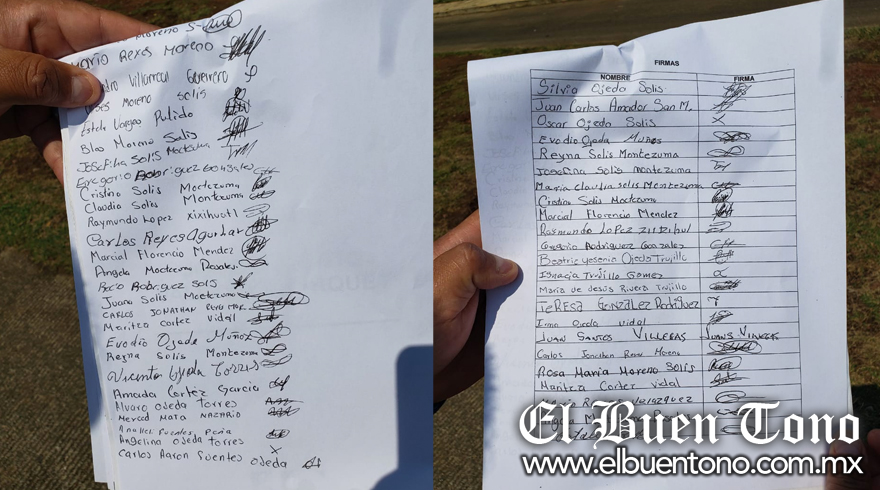 Moreno S
Mario Reyes Moreno
Villarreal Guerrero
Moreno Solis
Estela Vargas Pulido
Blas Moreno Solis
Josefina Solis Moctezuma
Gregorio Rodriguez Gonzales
Cristina Solis Moctezuma
Claudia Solis Montezuma
Raymundo Lopez xixihuotl
Carlos Reyes Aguilar
Marcial Florencio Mendez
Angela Moctezuma Rosales
Rocio Rodriguez Solis
Juana Solis Moctezuma
CARLOS JONATHAN
Maritza Cortez Vidal
Evodio Ojeda Muñoz
Reyna Solis Montezuma
Vicenta Ojeda Torres
Amada Cortéz Garcia
Alvaro Ojeda torres
Merced Mato NAZARIO
Anallel fuentes Peña
Angelina Ojeda torres
Carlos Aaron Fuentes Ojeda
FIRMAS
NOMBRE FIRMA
Silvia Ojeda Solis
Juan Carlos Amador San M.
Oscar Ojeda Solis
Evodio Ojeda Muños
Reyna Solis Montezuma
Josefina Solis montezuma
Maria claudia solis Montezuma
Cristina Solis Moctezuma
Marcial Florencio Mendez
Rasmundo Lopez
Gregorio Rodriguez Gonzalez
Beatriz yesenia Ojeda Trujillo
Ignacia Trujillo Gomez
Maria de Jesús Rivera Trujillo
TeRESA GONZALEZ Rodriguez
Irma Ojeda vidal
JUAN SANTOS VILLEGAS
Carlos Jonathan Reyes Moreno
Rosa Maria Moreno Solis
Maritza Cortez vidal
Velazquez
El Buen Tono
www.elbuentono.com.mx